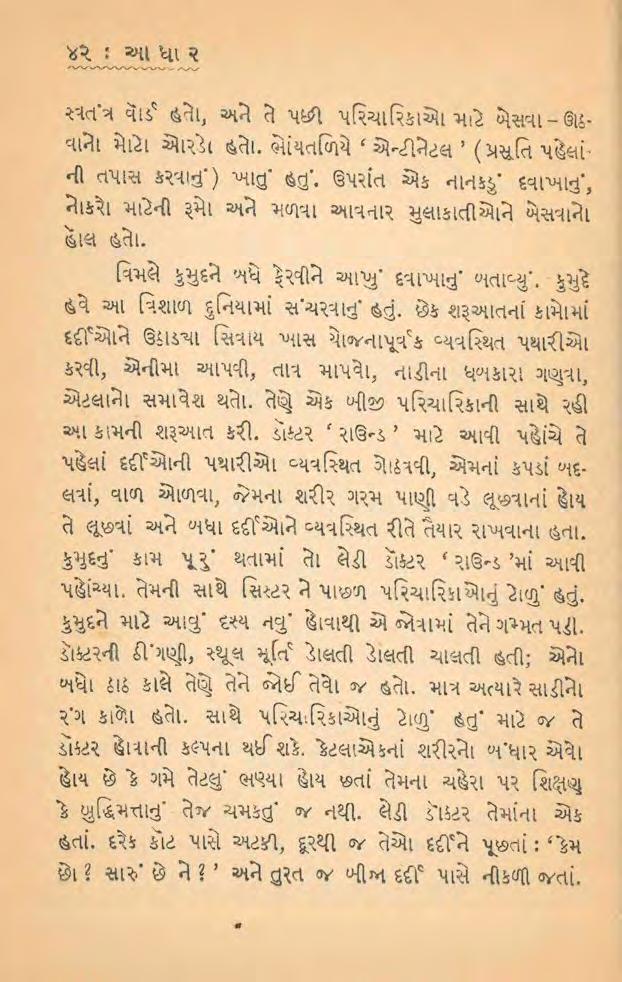 ૪૨ : આ ધા ર
સ્વતંત્ર વૉર્ડ હતો, અને તે પછી પરિચારિકાઓ માટે બેસવા – ઊઠ-
વાનો મોટો ઓરડો હતો. ભોંયતળિયે ‘ એન્ટીનેટલ ’ ( પ્રસૂતિ પહેલાં-
ની તપાસ કરવાનું ) ખાતું હતું. ઉપરાંત એક નાનકડું દવાખાનું,
નોકરો માટેની રૂમો અને મળવા આવનાર મુલાકાતીઓને બેસવાનો
હૉલ હતો.
વિમલે કુમુદને બધે ફેરવીને આખું દવાખાનું બતાવ્યું. કુમુદે
હવે આ વિશાળ દુનિયામાં સંચરવાનું હતું. છેક શરૂઆતનાં કામોમાં
દર્દીઓને ઉઠાડવા સિવાય ખાસ યોજનાપૂર્વક વ્યવસ્થિત પથારીઓ
કરવી, એનીમા આપવી, તાવ માપવો, નાડીના ધબકારા ગણવા,
એટલાનો સમાવેશ થતો. તેણે એક બીજી પરિચારિકાની સાથે રહી
આ કામની શરૂઆત કરી. ડૉક્ટર ‘ રાઉન્ડ ’ માટે આવી પહોંચે તે
પહેલાં દર્દીઓની પથારીઓ વ્યવસ્થિત ગોઠવવી, એમનાં કપડાં બદ-
લવાં, વાળ ઓળવા, જેમના શરીર ગરમ પાણી વડે લૂછવાનાં હોય
તે લૂછવાં અને બધા દર્દીઓને વ્યવસ્થિત રીતે તૈયાર રાખવાના હતા.
કુમુદનું કામ પૂરું થતામાં તો લેડી ડૉક્ટર ‘ રાઉન્ડ ’માં આવી
પહોંચ્યા. તેમની સાથે સિસ્ટર ને પાછળ પરિચારિકાઓનું ટોળું હતું.
કુમુદને માટે આવું દૃસ્ય નવું હોવાથી એ જોવામાં તેને ગમ્મત પડી.
ડૉક્ટરની ઠીંગણી, સ્થૂલ મૂર્તિ ડોલતી ડોલતી ચાલતી હતી; એનો
બધો ઠાઠ કાલે તેણે તેને જોઈ તેવો જ હતો. માત્ર અત્યારે સાડીનો
રંગ કાળો હતો. સાથે પરિચારિકાઓનું ટોળું હતું માટે જ તે
ડૉક્ટર હોવાની કલ્પના થઈ શકે. કેટલાએકનાં શરીરનો બંધાર એવો
હોય છે કે ગમે તેટલું ભણ્યા હોય છતાં તેમના ચહેરા પર શિક્ષણ
કે બુદ્ધિમત્તાનું તેજ ચમકતું જ નથી. લેડી ડૉક્ટર તેમાંના એક
હતાં. દરેક કૉટ પાસે અટકી, દૂરથી જ તેઓ દર્દીને પૂછતાં : ‘કેમ
છો ? સારું છે ને ? ’ અને તુરત જ બીજા દર્દી પાસે નીકળી જતાં.